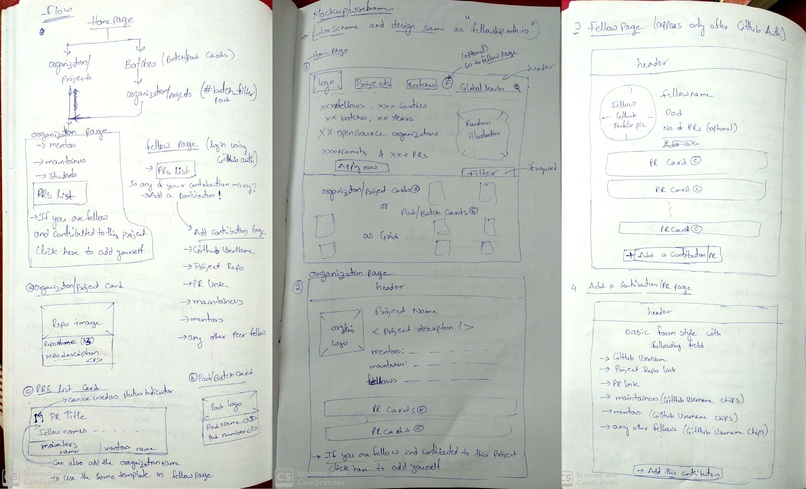 Flow
Home Page
Organization/
Projects
Batches (Batch/pod Cards)
Organization/Projects (#batch_filter)
Pod
Organization page
→ mentors
→ maintainers
→ students
PRs list
→ If you are fellow
and contributed to this Project
Click here to add yourself
fellow page (login using
Github auth)
→ PRs list
Is any of your contribution missing?
→ Add a Contribution!
→ Add Contribution Page
→ Github UserName
→ Project Repo
→ PR link
→ maintainers
→ mentors
→ any other Peer fellow
ⓐ Organization/Project Card
Repo image
Repo Name
repo description
ⓒ PRs list Card
→ can be used as status indicator
PR Title
Fellow names -
maintainers
name
mentors name
→ Can also add the organization name
to use the same template in fellow page
ⓑ Pod/Batch Card
Pod logo
Pod Name
Pod number
Mockup/Wireframe
→ (color scheme and design same as "fellowship.mlh.io")
Home Page
①
(optional)
Go to fellow page
header
Logo
Projects
Batches
F
Global Search
xxx fellows, xxx Countries
xx batches, xx Years
XX opensource organizations
xxx commits & xxx PRs
Random
illustration
Apply now
filter
if required
organization/Project Cards ⓐ
or
Pod/Batch Cards ⓑ
as Grid
Organization page
②
header
Logo
Project Name
< Project description />
mentors: - - -
maintainers: - - -
fellows - - -
PR Cards ⓒ
PR Cards ⓒ
→ If you are fellow and contributed to this Project
Click here to add yourself
3 Fellow Page (appears only after Github Auth)
header
Fellow
Github
Profile pic
Fellow name
Pod
No. of PRs (optional)
PR Card ⓒ
PR Card ⓒ
PR Card ⓒ
+ Add a Contribution/PR
4 Add a Contribution/PR Page
header
Basic form style with
following field
→ GitHub Username
→ Project Repo link
→ PR link
→ maintainers (GitHub Username chips)
→ mentors (GitHub Username chips)
→ any other fellows (GitHub Username chips)
+ Add this Contribution
CS Scanned with
CamScanner
CS Scanned with
CamScanner
CS Scanned with
CamScanner